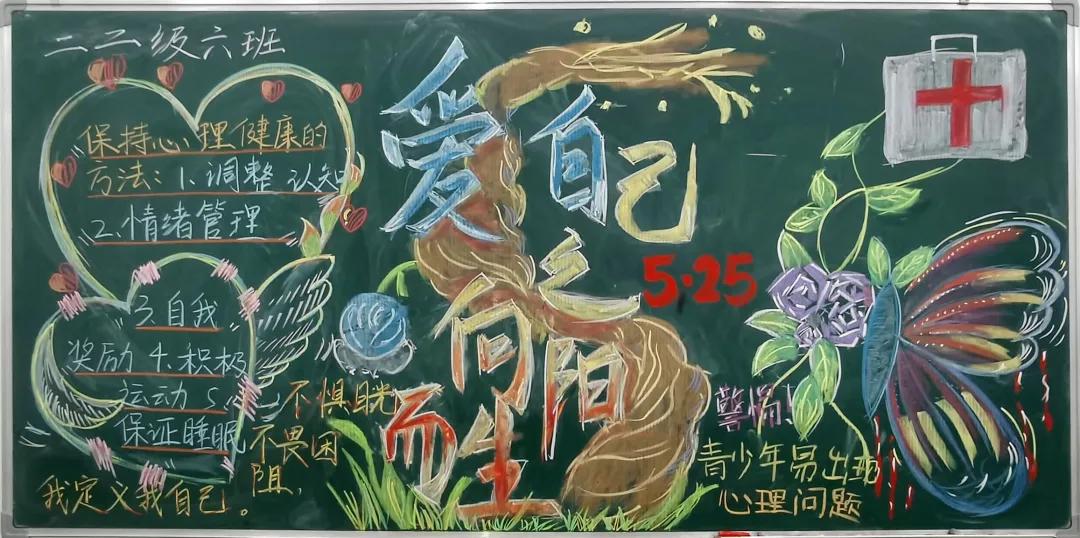 二二级六班
保持心理健康的
方法：1、调整认知
2.情绪管理
3.自我
奖励4.积极
运动5
保证睡眠
不惧
不畏困
阻，
我定义我自己。
爱自己
向阳
而生
5·25
警惕！
青少年易出现
心理问题